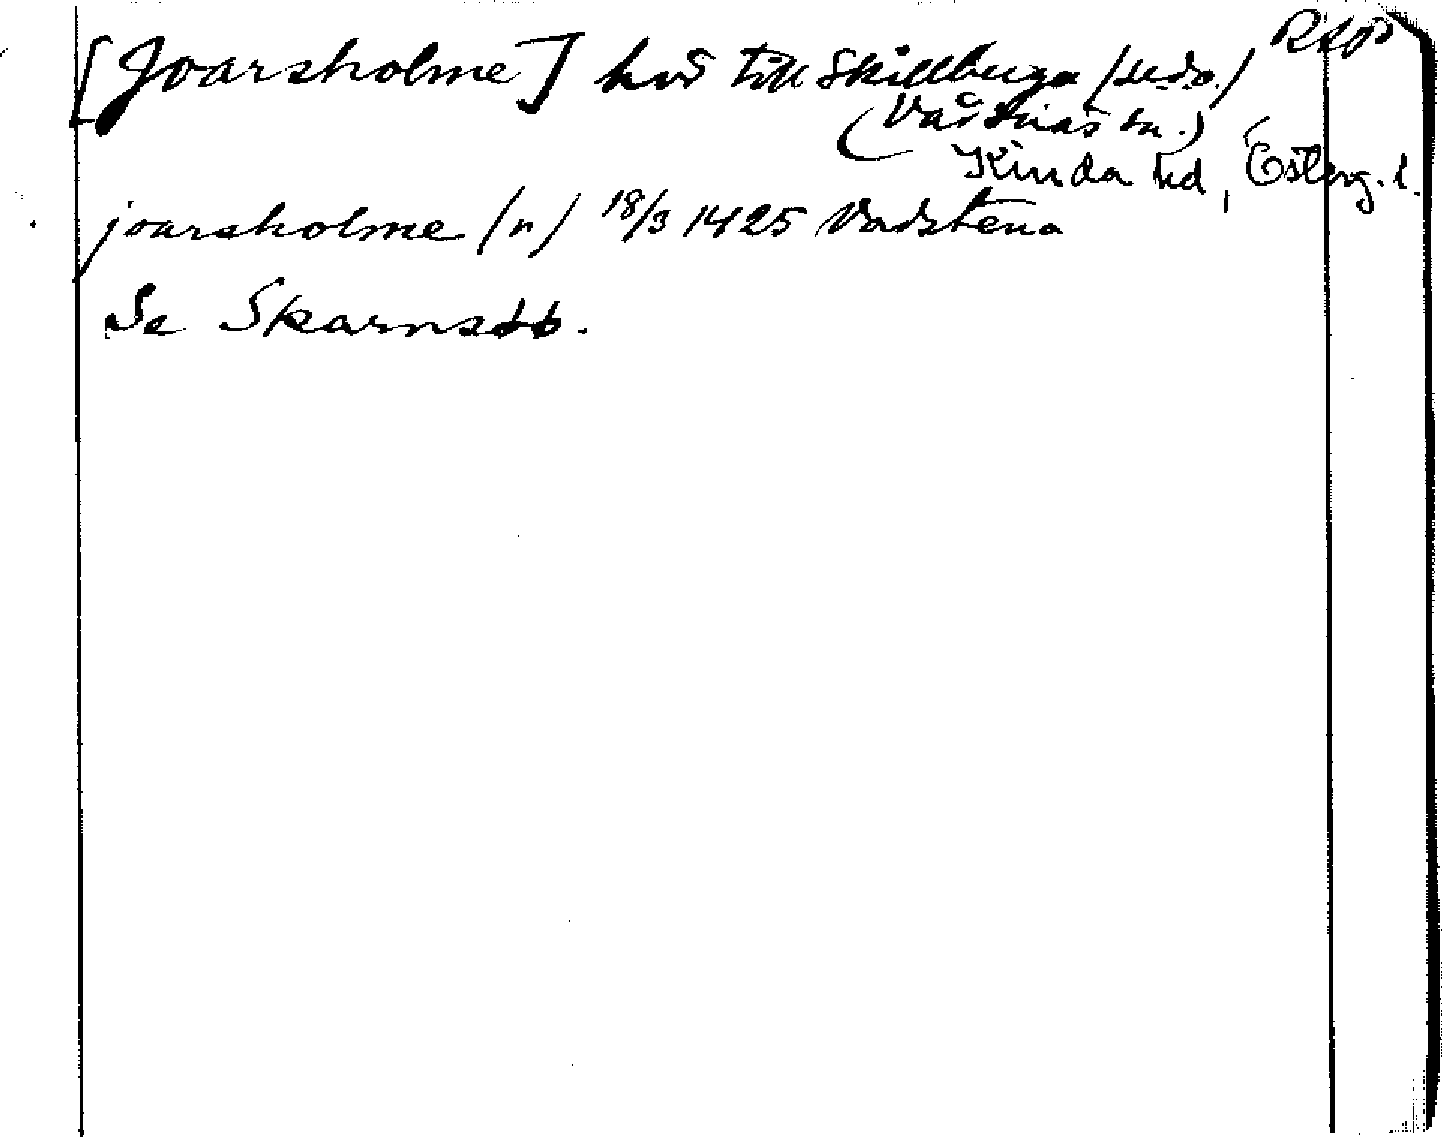 [Joarsholme] hör till Skillberga (
(Vårdnäs sn.)
Kinda hd, Österg. l.
joarsholme (n) 18/3 1425 Vadstena
Se